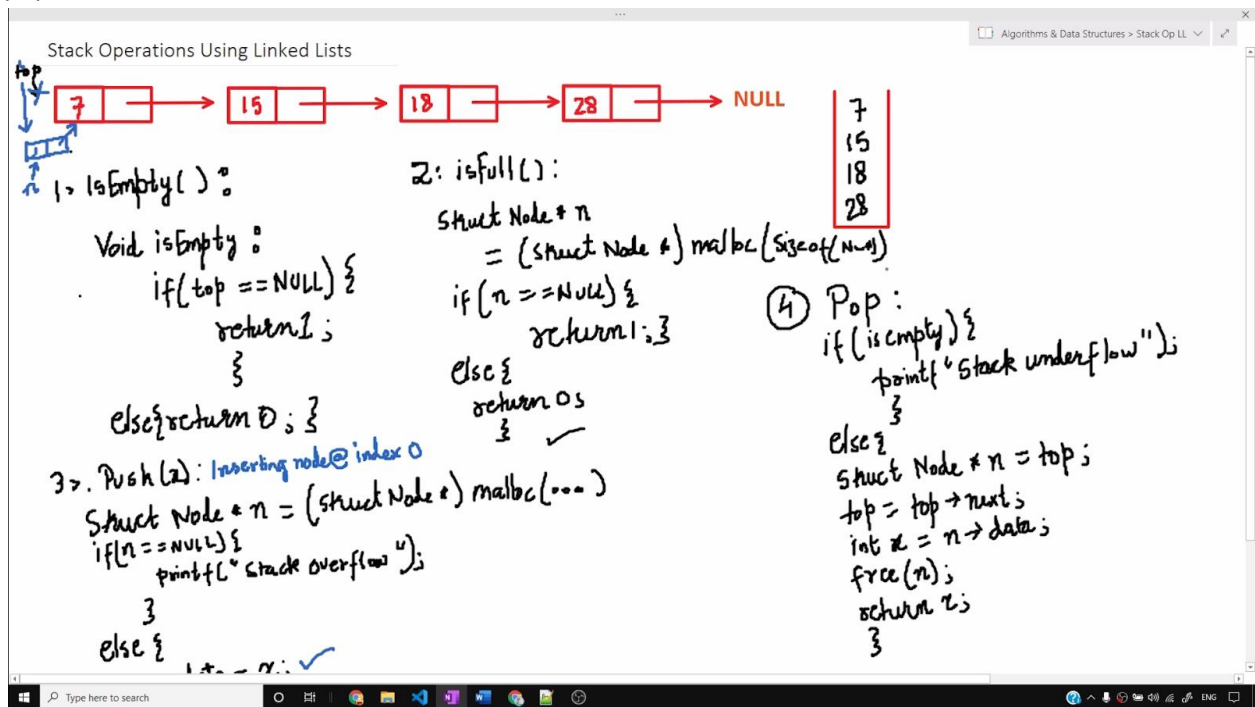 Algorithms & Data Structures > Stack Op LL
Stack Operations Using Linked Lists
top
7
15
18
28
NULL
n
7
15
18
28
1> IsEmpty() :
Void isEmpty :
if(top ==NULL) {
return 1 ;
}
else{return 0 ; }
2: isFull() :
Struct Node * n
= (struct Node *) malloc(Sizeof(
if(n ==NULL) {
return 1 ; }
else {
return 0;
}
3>. Push(x): Inserting node@ index 0
Struct Node * n = (struct Node *) malloc(...)
if(n==NULL) {
printf(" Stack overflow ");
}
else {
= x;
4 Pop :
if(isempty) {
printf("Stack underflow");
}
else {
Struct Node * n = top ;
top = top → next ;
int x = n → data ;
free(n) ;
return x ;
}
Type here to search
ENG